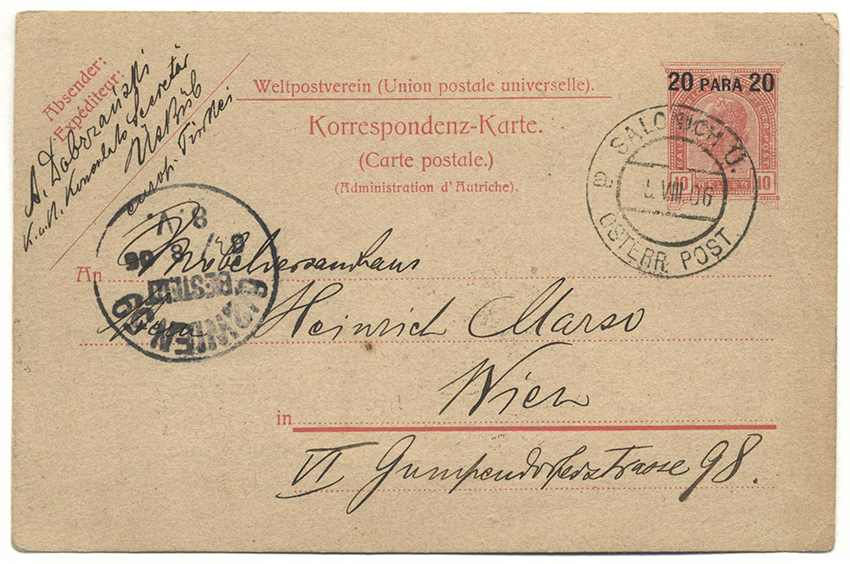 Absender:
Expéditeur:
A. Dobrzański
K. u. K. Konsulats Secretär
Üsküb
europ. Türkei
Weltpostverein (Union postale universelle).
Korrespondenz-Karte.
(Carte postale.)
(Administration d'Autriche).
20 PARA 20
10 10
SALONICH
ÖSTERR. POST.
VIII 06
8. V.
8/8
06
BESTELLT
WIEN
An
Heinrich Marso
Wien
in
VI Gumpendorferstrasse 98.